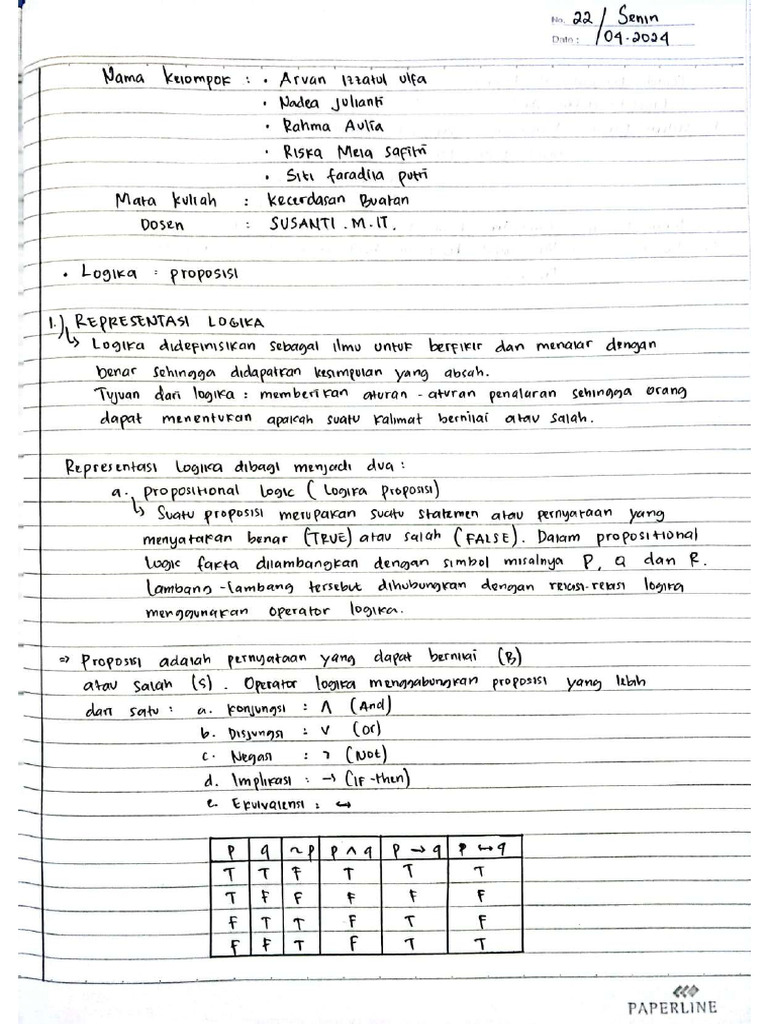 No. 22 / Senin
Date : /04-2024
Nama Kelompok : • Arvan Izzatul ulfa
• Nadea Julianti
• Rahma Aulia
• Riska Mela Safitri
• Siti faradila putri
Mata kuliah : kecerdasan Buatan
Dosen : SUSANTI . M . IT.
• Logika : proposisi
1.) REPRESENTASI LOGIKA
↳ Logika didefinisikan sebagai ilmu untuk berfikir dan menalar dengan
benar sehingga didapatkan kesimpulan yang absah.
Tujuan dari logika : memberikan aturan - aturan penalaran sehingga orang
dapat menentukan apakah suatu kalimat bernilai atau salah.
Representasi Logika dibagi menjadi dua :
a. propositional logic ( logika proposisi)
↳ Suatu proposisi merupakan suatu statemen atau pernyataan yang
menyatakan benar (TRUE) atau salah (FALSE). Dalam propositional
logic fakta dilambangkan dengan simbol misalnya P, Q dan R.
lambang -lambang tersebut dihubungkan dengan relasi-relasi logika
menggunakan operator logika.
⇒ Proposisi adalah pernyataan yang dapat bernilai (B)
atau salah (s). Operator logika menggabungkan proposisi yang lebih
dari satu : a. konjungsi : ∧ (And)
b. Disjungsi : ∨ (or)
c. Negasi : ¬ (Not)
d. Implikasi : → (IF-then)
e. Ekuivalensi : ↔
p q ~p p ∧ q p → q p ↔ q
T T F T T T
T F F F F F
F T T F T F
F F T F T T
PAPERLINE